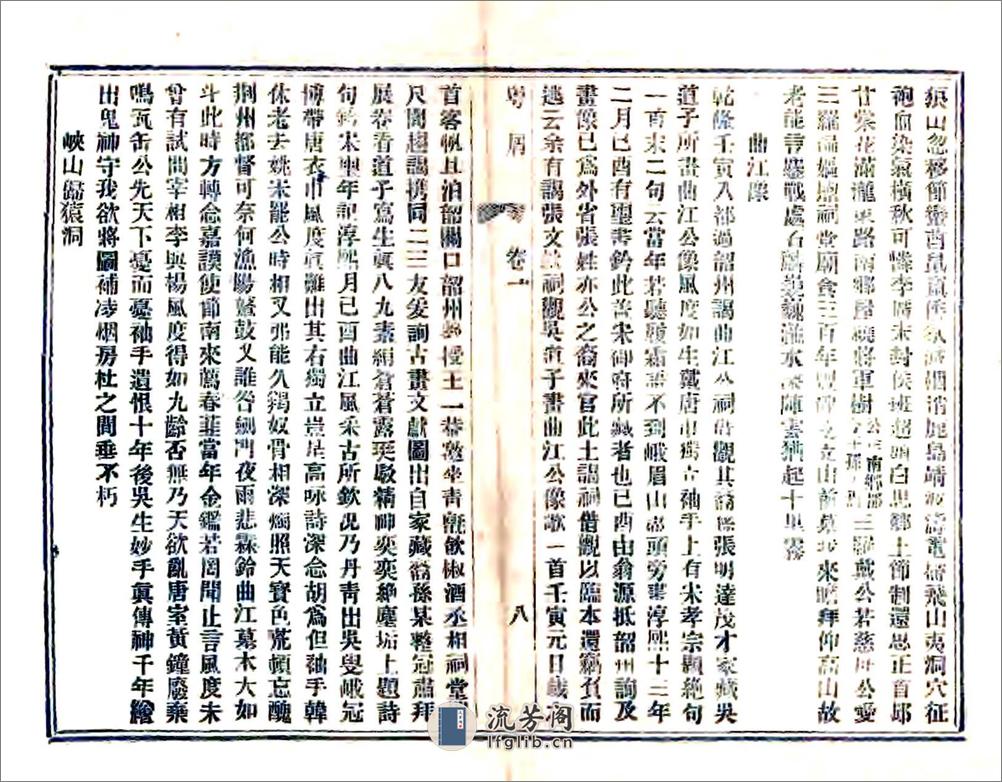 痕山忽移節
袍血染氣橫秋可憐李廣未封侯班超頭白思鄉土節制還思正首邱
甘棠花滿瀧東路南鄉屋曉將軍樹三羅戴公若慈母公愛
三羅祠堂廟食三百年立山前來瞻拜仰高山故
老能話鏖戰處石水深陣雲猶起十里霧
曲江像
乾隆壬寅入都過韶州謁曲江公祠觀其裔張明達茂才家藏吳
道子所畫曲江公像風度如生戴唐巾獨立袖手上有宋孝宗題絕句
一首末二句云當年若聽語不到峨眉山頭旁書淳熙十三年
二月己酉有璽書鈐此善宋御府所藏者也己酉由翁源抵韶州詢及
畫像已為外省張姓亦公之裔來官此土謁祠借觀以臨本還竊負而
逃云余有謁張文祠觀吳道子畫曲江公像歌一首壬寅元日歲
粵屑 卷一 八
首客帆且泊韶關口韶州坐青氈飲椒酒丞相祠堂
尺閒趨謁攜同二三友爰詢古畫文獻圖出自家藏裔孫某整冠肅拜
展卷看道子寫生真八九素絹蒼蒼露精神奕奕絕塵垢上題詩
句銘宋璽年記淳熙月己酉曲江風采古所欽況乃丹青出吳叟峨冠
博帶唐衣巾風度真難出其右獨立豈是高咏詩深念胡為但袖手韓
休老去姚宋罷公時相又弗能久羯奴骨相深燭照天寶色荒頓忘醜
荆州都督可奈何漁陽鼙鼓又誰咎劍門夜雨悲霖鈴曲江墓木大如
斗此時方轉念嘉謨使節南來薦春韮當年金鑑若罔聞止言風度未
曾有試問宰相李與楊風度得如九齡否無乃天欲亂唐室黃鐘廢棄
鳴瓦缶公先天下憂而憂袖手遺恨十年後吳生妙手真傳神千年繪
出鬼神守我欲將圖補凌烟房杜之間垂不朽
峽山歸猿洞
流芳阁
lfglib.cn